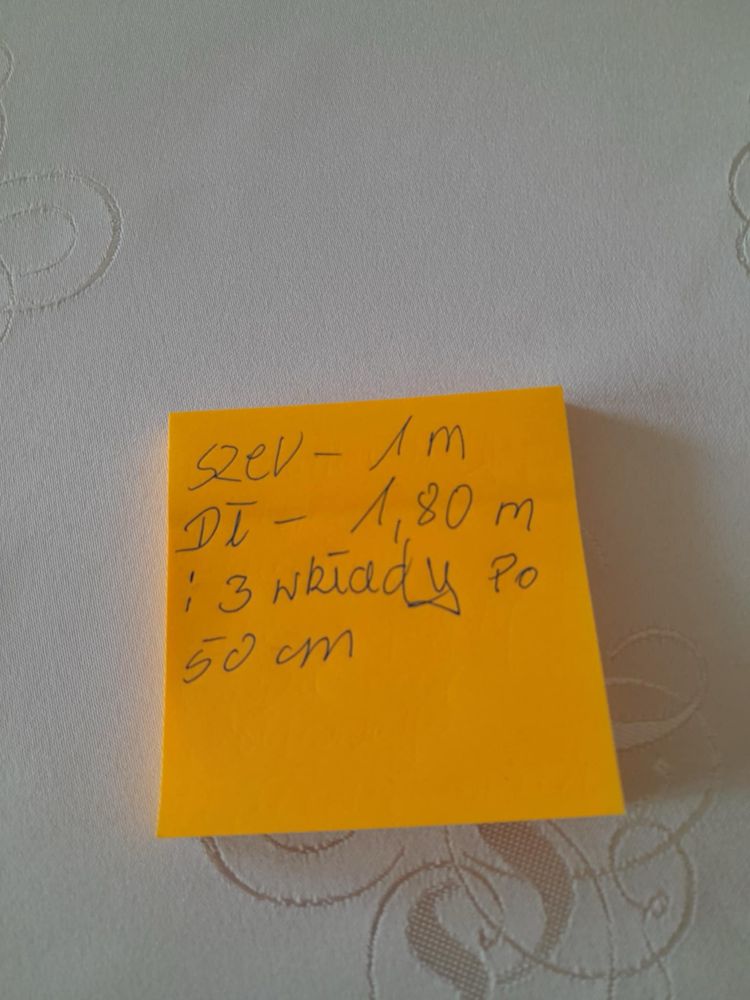 szer - 1 m
Dł - 1,80 m
i 3 wkłady Po
50 cm